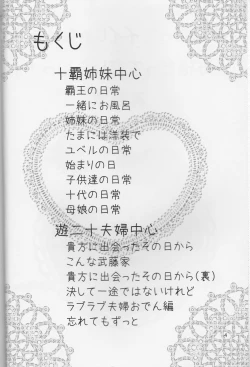 もくじ
十覇姉妹中心
覇王の日常
一緒にお風呂
姉妹の日常
たまには洋装で
ユベルの日常
始まりの日
子供達の日常
十代の日常
母娘の日常
遊二十夫婦中心
貴方に出会ったその日から
こんな武藤家
貴方に出会ったその日から(裏)
決して一途ではないけれど
ラブラブ夫婦おでん編
忘れてもずっと